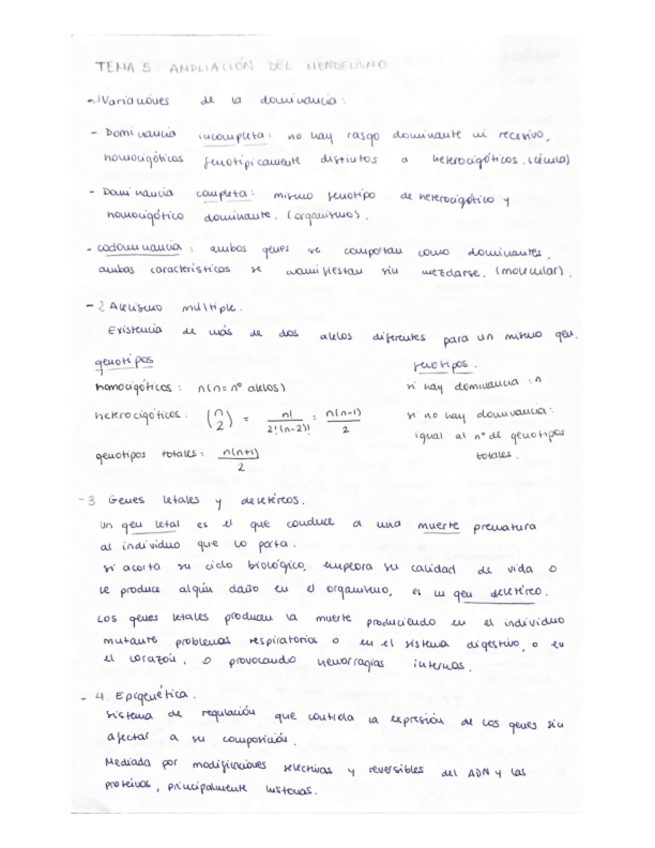 TEMA 5: AMPLIACIÓN DEL MENDELISMO
- 1 Variaciones de la dominancia:
- Dominancia incompleta: no hay rasgo dominante ni recesivo,
homocigóticos fenotípicamente distintos a heterocigóticos. (célula)
- Dominancia completa: mismo fenotipo de heterocigótico y
homocigótico dominante. (organismo).
- codominancia: ambos genes se comportan como dominantes.
ambas características se manifiestan sin mezclarse. (molecular).
- 2 Alelismo múltiple.
Existencia de más de dos alelos diferentes para un mismo gen.
genotipos
homocigóticos: n (n = nº alelos)
heterocigóticos: (n 2) = n! / 2!(n-2)! = n(n-1) / 2
genotipos totales: n(n+1) / 2
fenotipos.
si hay dominancia: n
si no hay dominancia:
igual al nº de genotipos
totales.
- 3. Genes letales y deletéreos.
Un gen letal es el que conduce a una muerte prematura
al individuo que lo porta.
si acorta su ciclo biológico, empeora su calidad de vida o
le produce algún daño en el organismo, es un gen deletéreo.
Los genes letales producen la muerte produciendo en el individuo
mutante problemas respiratorios o en el sistema digestivo, o en
el corazón, o provocando hemorragias internas.
- 4. Epigenética.
sistema de regulación que controla la expresión de los genes sin
afectar a su composición.
Mediada por modificaciones selectivas y reversibles del ADN y las
proteínas, principalmente histonas.